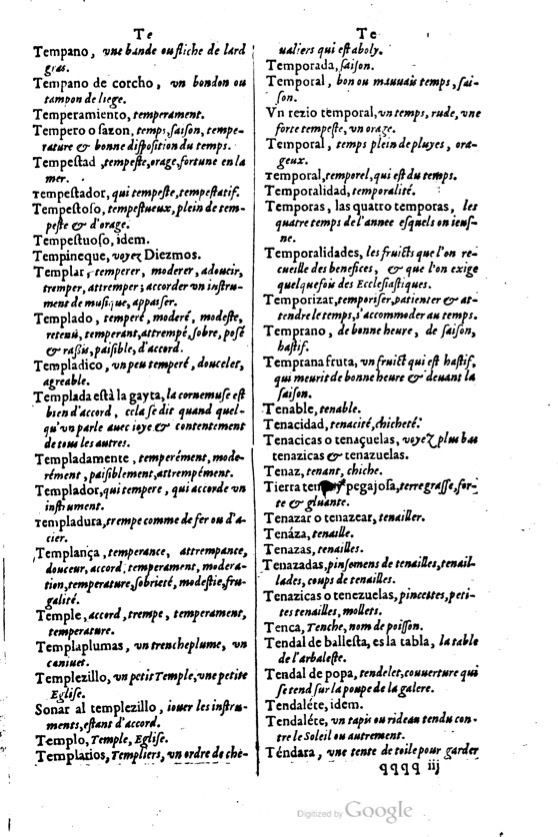 Te
Tempano, vne bande ou fliche de lard
gras.
Tempano de corcho, vn bondon ou
tampon de liege.
Temperamiento, temperament.
Tempero o sazon, temps, saison, tempe-
rature & bonne disposition du temps.
Tempestad, tempeste, orage, fortune en la
mer.
Tempestador, qui tempeste, tempestatif.
Tempestoso, tempestueux, plein de tem-
peste & d'orage.
Tempestuoso, idem.
Tempineque, voyez Diezmos.
Templar, temperer, moderer, adoucir,
tremper, attremper; accorder vn instru-
ment de musique, appaiser.
Templado, temperé, moderé, modeste,
retenü, temperant, attrempé, sobre, posé
& rassis, paisible, d'accord.
Templadico, vn peu temperé, doucelet,
agreable.
Templada està la gayta, la cornemuse est
bien d'accord, cela se dit quand quel-
qu'vn parle auec ioye & contentement
de tous les autres.
Templadamente, temperément, mode-
rément, paisiblement, attrempément.
Templador, qui tempere, qui accorde vn
instrument.
Templadura, trempe comme de fer ou d'a-
cier.
Templança, temperance, attrempance,
douceur, accord, temperament, modera-
tion, temperature, sobrieté, modestie, fru-
galité.
Temple, accord, trempe, temperament,
temperature.
Templaplumas, vn trencheplume, vn
caniuet.
Templezillo, vn petit Temple, vne petite
Eglise.
Sonar al templezillo, iouer les instru-
ments, estant d'accord.
Templo, Temple, Eglise.
Templarios, Templiers, vn ordre de che-
Te
ualiers qui est aboly.
Temporada, saison.
Temporal, bon ou mauuais temps, sai-
son.
Vn rezio temporal, vn temps, rude, vne
forte tempeste, vn orage.
Temporal, temps plein de pluyes, ora-
geux.
Temporal, temporel, qui est du temps.
Temporalidad, temporalité.
Temporas, las quatro temporas, les
quatre temps de l'annee esquels on ieus-
ne.
Temporalidades, les fruicts que l'on re-
cueille des benefices, & que l'on exige
quelquefois des Ecclesiastiques.
Temporizar, temporiser, patienter & at-
tendre le temps, s'accommoder au temps.
Temprano, de bonne heure, de saison,
hastif.
Temprana fruta, vn fruict qui est hastif,
qui meurit de bonne heure & deuant la
saison.
Tenable, tenable.
Tenacidad, tenacité, chicheté.
Tenacicas o tenaçuelas, voyez plus bas
tenazicas & tenazuelas.
Tenaz, tenant, chiche.
Tierra pegajosa, terre grasse, for-
te & gluante.
Tenazar o tenazear, tenailler.
Tenáza, tenaille.
Tenazas, tenailles.
Tenazadas, pinsemens de tenailles, tenail-
lades, coups de tenailles.
Tenazicas o tenezuelas, pincettes, peti-
tes tenailles, mollets.
Tenca, Tenche, nom de poisson.
Tendal de ballesta, es la tabla, la table
de l'arbaleste.
Tendal de popa, tendelet, couuerture qui
se tend sur la poupe de la galere.
Tendaléte, idem.
Tendaléte, vn tapis ou rideau tendu con-
tre le Soleil ou autrement.
Téndara, vne tente de toile pour garder
qqqq iij
Digitized by Google